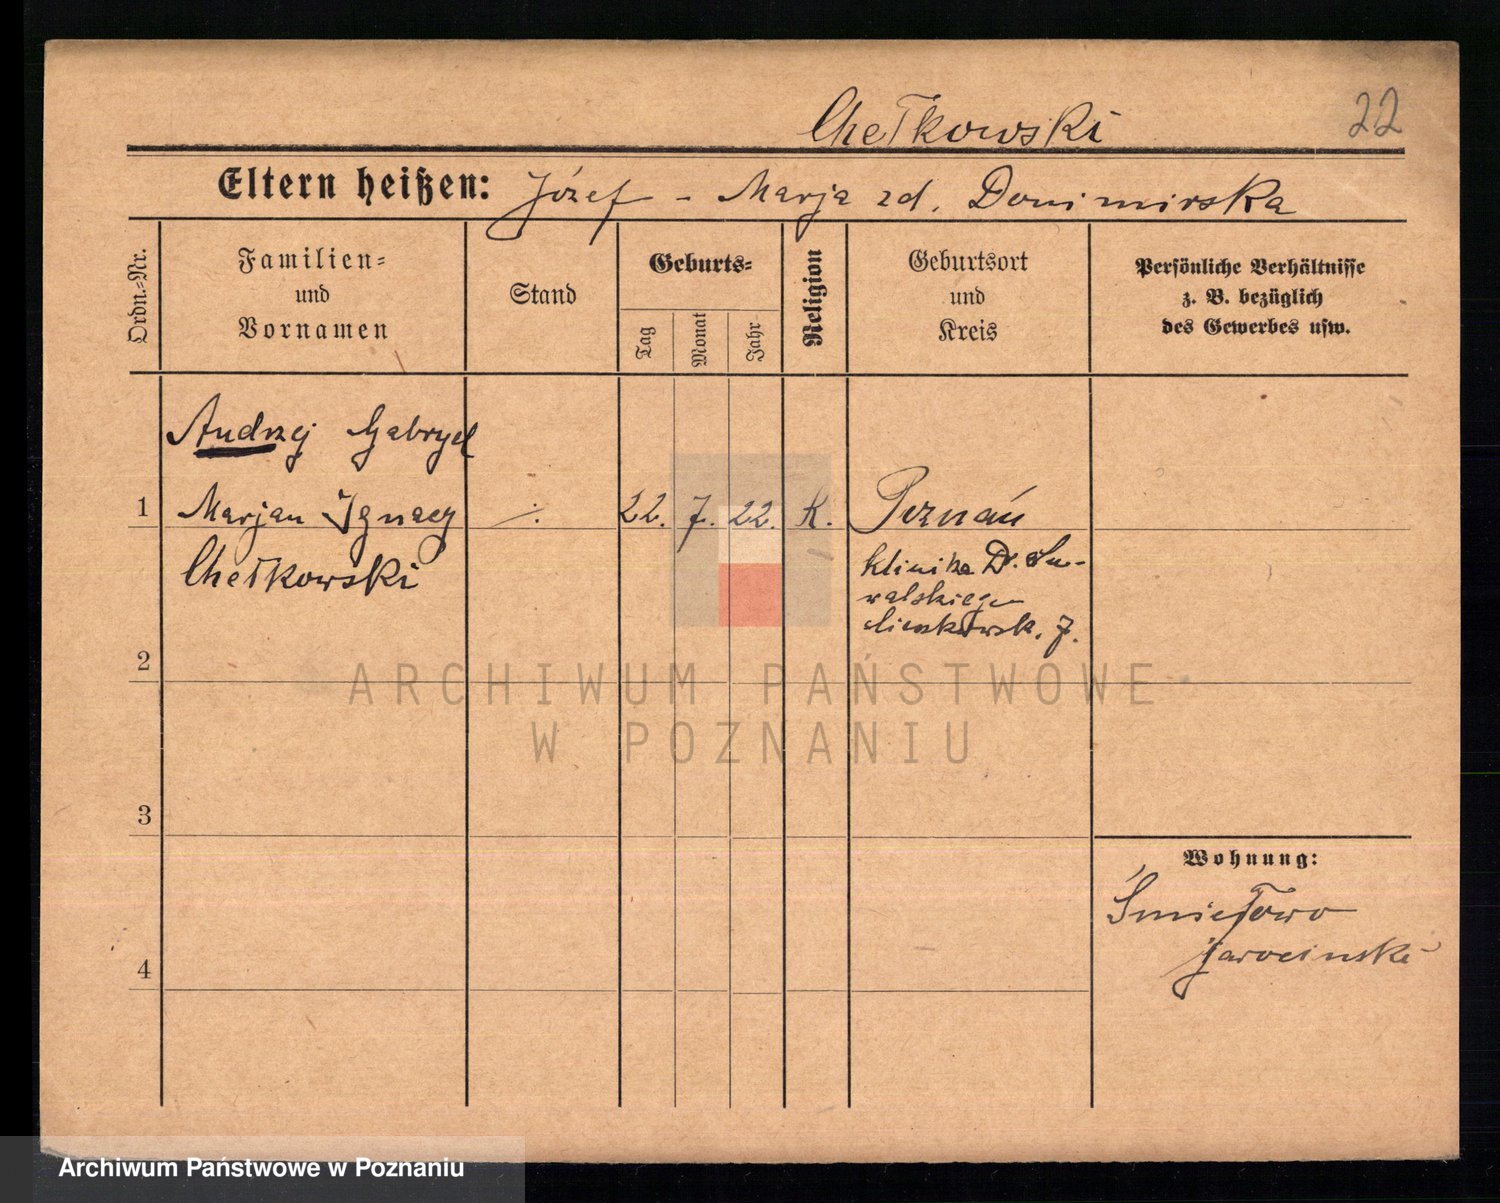 Chełkowski
22
Eltern heißen: Józef - Marja zd. Donimirska
Ordn.-Nr.
Familien-
und
Vornamen
Stand
Geburts-
Tag
Monat
Jahr
Religion
Geburtsort
und
Kreis
Persönliche Verhältnisse
z. B. bezüglich
des Gewerbes usw.
Andrzej Gabryel
1 Marjan Ignacy ./. 22. 7. 22. K. Poznań
Chełkowski
klinika Dr. Su-
walskiego
7.
2
3
4
Wohnung:
Śmiełowo
jarocinski
ARCHIWUM PAŃSTWOWE
W POZNANIU
Archiwum Państwowe w Poznaniu